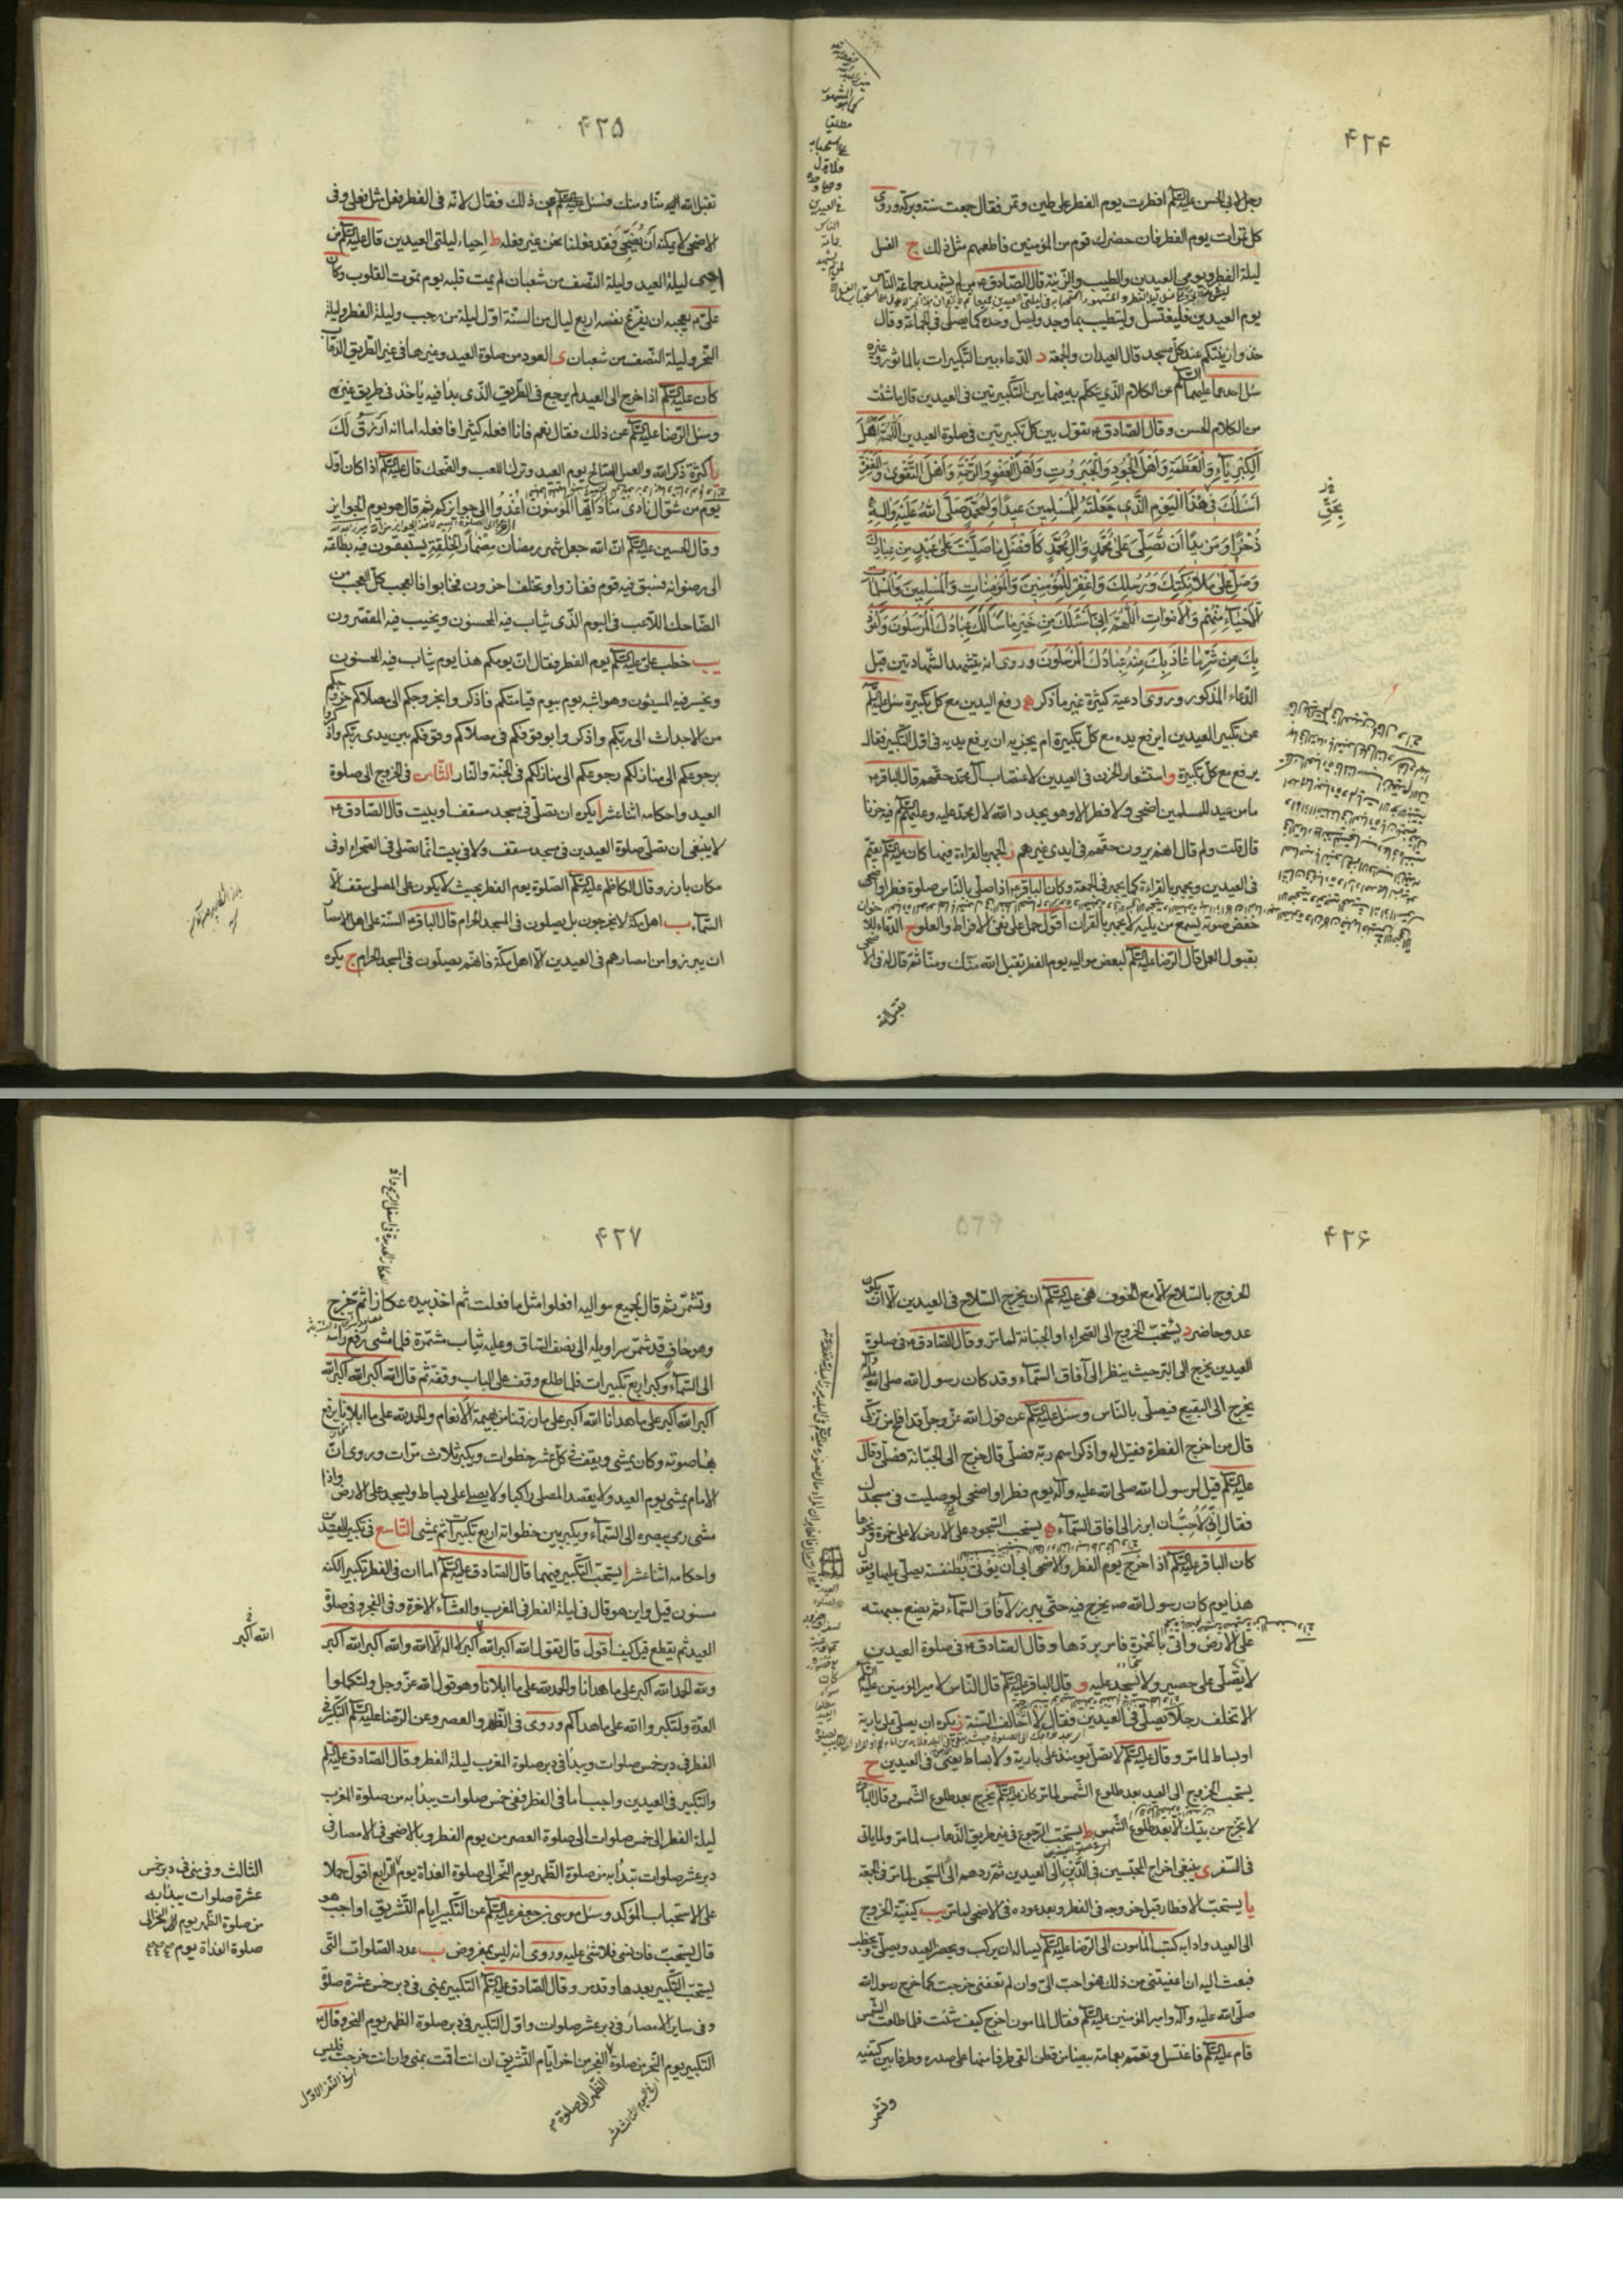 ۴۲۴
رجل لابي الحسن عليه السلام افطرت يوم الفطر على طين وتمر فقال جمعت سنة وبركة وروى
كل تمرات يوم الفطر فان حضرك قوم من المؤمنين فاطعمهم مثل ذلك ج الغسل
ليلة الفطر ويومي العيدين والطيب والزينة قال الصادق ع من لم يشهد جماعة الناس
يوم العيدين فليغتسل وليتطيب بما وجد وليصل وحده كما يصلي في الجماعة وقال
خذوا زينتكم عند كل مسجد قال العيدان والجمعة د الدعاء بين التكبيرات بالماثور وغيره
سئل احدهما عليهما السلام عن الكلام الذي يتكلم به فيما بين التكبيرتين في العيدين قال ما شئت
من الكلام الحسن وقال الصادق ع تقول بين كل تكبيرتين في صلوة العيدين اللهم اهل
الكبرياء والعظمة واهل الجود والجبروت واهل العفو والرحمة واهل التقوى والمغفرة
اسئلك في هذا اليوم الذي جعلته للمسلمين عيدا ولمحمد صلى الله عليه واله
ذخرا ومزيدا ان تصلي على محمد وال محمد كافضل ما صليت على عبد من عبادك
وصل على ملائكتك ورسلك واغفر للمؤمنين والمؤمنات والمسلمين والمسلمات
الاحياء منهم والاموات اللهم اني اسئلك من خير ما سألك عبادك المرسلون واعوذ
بك من شر ما عاذ بك منه عبادك المرسلون وروى انه يتشهد الشهادتين قبل
الدعاء المذكور وروى ادعية كثيرة غير ما ذكر ه رفع اليدين مع كل تكبيرة سئل عليه السلام
عن تكبير العيدين ايرفع يده مع كل تكبيرة ام يجزيه ان يرفع يديه في اول التكبير فقال
يرفع مع كل تكبيرة و استشعار الحزن في العيدين لاغتصاب آل محمد حقهم قال الباقر ع
ما من عيد للمسلمين اضحى ولا فطر الا وهو يجدد الله لال محمد عليه وعليهم السلام فيه حزنا
قال قلت ولم قال انهم يرون حقهم في ايدي غيرهم ز الجهر بالقراءة فيهما كان عليه السلام يعتم
في العيدين ويجهر بالقراءة كما يجهر في الجمعة وكان الباقر ع اذا صلى بالناس صلوة فطر او اضحى
خفض صوته يسمع من يليه لا يجهر بالقران اقول حمل على نفي الافراط والعلو ح الدعاء
بقبول العمل قال الرضا عليه السلام لبعض مواليه يوم الفطر تقبل الله منك ومنا ثم قال له في الاضحى
تقبل الله
۴۲۵
تقبل الله منا ومنك فسئل عليه السلام عن ذلك فقال لانه في الفطر فعل مثل فعلي وفي
الاضحى لا يمكنه ان يضحي فقد فعلنا نحن غير فعله ط احياء ليلتي العيدين قال عليه السلام من
احيى ليلة العيد وليلة النصف من شعبان لم يمت قلبه يوم تموت القلوب وكان
علي ع يعجبه ان يفرغ نفسه اربع ليال من السنة اول ليلة من رجب وليلة الفطر وليلة
النحر وليلة النصف من شعبان ى العود من صلوة العيد وغيرها في غير الطريق الذهاب
كان عليه السلام اذا خرج الى العيد لم يرجع في الطريق الذي بدا فيه ياخذ في طريق غيره
وسئل الرضا عليه السلام عن ذلك فقال نعم فانا افعله كثيرا فافعله اما انه ارزق لك
يا كثرة ذكر الله والعمل الصالح يوم العيد وترك اللعب والضحك قال عليه السلام اذا كان اول
يوم من شوال نادى مناد ايها المؤمنون اغدوا الى جوايزكم ثم قال هو يوم الجوايز
وقال الحسين عليه السلام ان الله جعل شهر رمضان مضمارا لخلقه يستبقون فيه بطاعته
الى رضوانه فسبق فيه قوم ففازوا وتخلف اخرون فخابوا فالعجب كل العجب من
الضاحك اللاعب في اليوم الذي يثاب فيه المحسنون ويخيب فيه المقصرون
يب خطب علي عليه السلام يوم الفطر فقال ان يومكم هذا يوم يثاب فيه المحسنون
ويخسر فيه المسيئون وهو اشبه يوم بيوم قيامتكم فاذكروا بخروجكم الى مصلاكم خروجكم
من الاجداث الى ربكم واذكروا بوقوفكم في مصلاكم وقوفكم بين يدي ربكم واذكروا
برجوعكم الى منازلكم رجوعكم الى منازلكم في الجنة والنار الثامن في الخروج الى صلوة
العيد واحكامه اثنا عشر ا يكره ان تصلى في مسجد مسقف او بيت قال الصادق ع
لا ينبغي ان تصلى صلوة العيدين في مسجد مسقف ولا في بيت انما تصلى في الصحراء او في
مكان بارز وقال الكاظم عليه السلام الصلوة يوم الفطر بحيث لا يكون على المصلى سقف الا
السماء ب اهل مكة لا يخرجون بل يصلون في المسجد الحرام قال الباقر ع السنة على اهل الامصار
ان يبرزوا من امصارهم في العيدين الا اهل مكة فانهم يصلون في المسجد الحرام ج يكره
۴۲۶
الخروج بالسلاح الا مع الخوف نهى عليه السلام ان يخرج السلاح في العيدين الا ان يكون
عدو حاضر د يستحب الخروج الى الصحراء او الجبانة لما مر وقال الصادق ع في صلوة
العيدين يخرج الى البر حيث ينظر الى آفاق السماء وقد كان رسول الله صلى الله عليه وآله
يخرج الى البقيع فيصلي بالناس وسئل عليه السلام عن قول الله عز وجل قد افلح من تزكى
قال من اخرج الفطرة فقيل له واذكر اسم ربه فصلى قال خرج الى الجبانة فصلى وقال
عليه السلام قيل لرسول الله صلى الله عليه وآله يوم فطر او اضحى لو صليت في مسجدك
فقال اني لاحب ان ابرز الى افاق السماء ه يستحب السجود على الارض لا على خمرة ونحوها
كان الباقر عليه السلام اذا خرج يوم الفطر والاضحى ابى ان يؤتى بطنفسة يصلي عليها ويقول
هذا يوم كان رسول الله ص يخرج فيه حتى يبرز لآفاق السماء ثم يضع جبهته
على الارض واتى بالخمرة فامر بردها وقال الصادق ع في صلوة العيدين
لا تصلى على حصير ولا تسجد عليه و قال الباقر عليه السلام قال الناس لامير المؤمنين عليه السلام
الا تخلف رجلا يصلي في العيدين فقال لا اخالف السنة ز يكره ان يصلى على بارية
او بساط لما مر وقال عليه السلام لا تصل يومئذ على بارية ولا بساط يعني في العيدين ح
يستحب الخروج الى العيد بعد طلوع الشمس لما مر كان عليه السلام يخرج بعد طلوع الشمس وقال الباقر
لا تخرج من بيتك الا بعد طلوع الشمس ط يستحب الرجوع في غير طريق الذهاب لما مر ولما ياتي
في السفر ى ينبغي اخراج المحبسين في الدين الى العيدين ثم ردهم الى السجن لما مر في الجمعة
يا يستحب الافطار قبل خروجه في الفطر وبعد عوده في الاضحى لما مر يب كيفية الخروج
الى العيد وادابه كتب المامون الى الرضا عليه السلام يساله ان يركب ويحضر العيد ويصلي ويخطب
فبعث اليه ان اعفيتني من ذلك فهو احب الي وان لم تعفني خرجت كما خرج رسول الله
صلى الله عليه وآله وامير المؤمنين عليه السلام فقال المامون اخرج كيف شئت فلما طلعت الشمس
قام عليه السلام فاغتسل وتعمم بعمامة بيضا من قطن القى طرفا منها على صدره وطرفا بين كتفيه
وتشمر
۴۲۷
وتشمر ثم قال لجميع مواليه افعلوا مثل ما فعلت ثم اخذ بيده عكازا ثم خرج
وهو حاف قد شمر سراويله الى نصف الساق وعليه ثياب مشمرة فلما مشى رفع راسه
الى السماء وكبر اربع تكبيرات فلما طلع وقف على الباب وقفة ثم قال الله اكبر الله اكبر الله
اكبر الله اكبر على ما هدانا الله اكبر على ما رزقنا من بهيمة الانعام والحمد لله على ما ابلانا يرفع
بها صوته وكان يمشي ويقف في كل عشر خطوات ويكبر ثلاث مرات وروى ان
الامام يمشي يوم العيد ولا يقصد المصلى راكبا ولا يصلي على بساط ويسجد على الارض واذا
مشى رمى ببصره الى السماء ويكبر بين خطواته اربع تكبيرات ثم يمشي التاسع في تكبير العيدين
واحكامه اثنا عشر ا يستحب التكبير فيهما قال الصادق عليه السلام اما ان في الفطر تكبيرا لكنه
مسنون قيل واين هو قال في ليلة الفطر في المغرب والعشاء الاخرة وفي الفجر وفي صلوة
العيد ثم يقطع قيل كيف اقول قال تقول الله اكبر الله اكبر لا اله الا الله والله اكبر الله اكبر
ولله الحمد الله اكبر على ما هدانا والحمد لله على ما ابلانا وهو قول الله عز وجل ولتكملوا
العدة ولتكبروا الله على ما هداكم وروى في الظهر والعصر وعن الرضا عليه السلام التكبير في
الفطر في دبر خمس صلوات ويبدأ في دبر صلوة المغرب ليلة الفطر وقال الصادق عليه السلام
والتكبير في العيدين واجب اما في الفطر ففي خمس صلوات يبدأ به من صلوة المغرب
ليلة الفطر الى خمس صلوات الى صلوة العصر من يوم الفطر وبالاضحى في الامصار في
دبر عشر صلوات تبدأ به من صلوة الظهر يوم النحر الى صلوة الغداة يوم الرابع اقول حملا
على الاستحباب المؤكد وسئل موسى بن جعفر عليه السلام عن التكبير ايام التشريق اواجب هو
قال يستحب فان نسي فلا شئ عليه وروى انه ليس بمفروض ب عدد الصلوات التي
يستحب التكبير بعدها وقد مر وقال الصادق عليه السلام التكبير بمنى في دبر خمس عشرة صلوة
وفي ساير الامصار في دبر عشر صلوات واول التكبير في دبر صلوة الظهر يوم النحر وقال ع
التكبير يوم النحر من صلوة الفجر من اخر ايام التشريق ان انت اقمت بمنى وان انت خرجت فليس
الظهر الى صلوة
الله اكبر
الثالث وفي منى في دبر خمس
عشرة صلوات يبدأ به
من صلوة الظهر يوم النحر الى
صلوة الغداة يوم